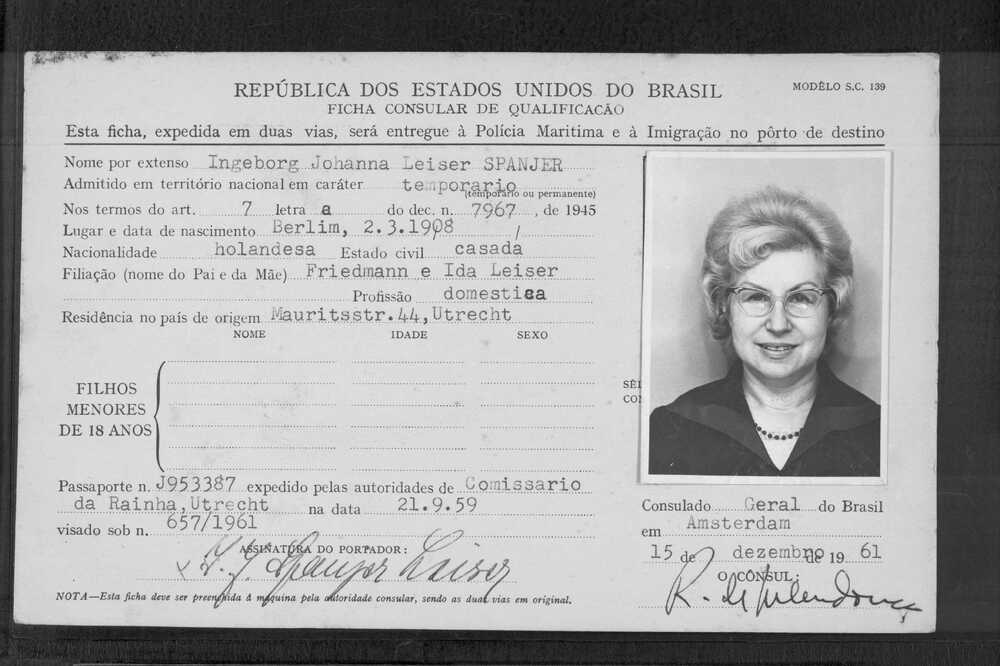 REPÚBLICA DOS ESTADOS UNIDOS DO BRASIL
MODÊLO S.C. 139
FICHA CONSULAR DE QUALIFICACÃO
Esta ficha, expedida em duas vias, será entregue à Polícia Maritima e à Imigração no pôrto de destino
Nome por extenso Ingeborg Johanna Leiser SPANJER
Admitido em território nacional em caráter temporario
(temporário ou permanente)
Nos termos do art. 7 letra a do dec. n. 7967, de 1945
Lugar e data de nascimento Berlim, 2.3.1908
Nacionalidade holandesa Estado civil casada
Filiação (nome do Pai e da Mãe) Friedmann e Ida Leiser
Profissão domestica
Residência no país de origem Mauritsstr.44,Utrecht
NOME IDADE SEXO
FILHOS
MENORES
DE 18 ANOS
Passaporte n. J953387 expedido pelas autoridades de Comissario
da Rainha,Utrecht na data 21.9.59
visado sob n. 657/1961
ASSINATURA DO PORTADOR:
Spanjer Leiser
NOTA—Esta ficha deve ser preenchida à maquina pela autoridade consular, sendo as duas vias em original.
Consulado Geral do Brasil
em Amsterdam
15 de dezembro de 19 61
O CÔNSUL:
R. de Mendonça